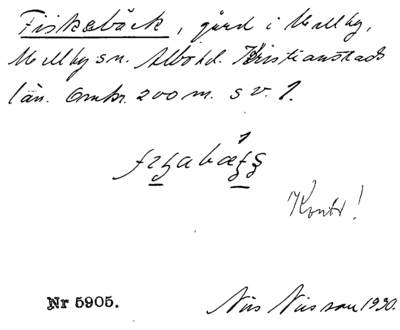 Fiskabäck, gård i Mellby,
Mellby sn. Albo hd. Kristianstads
län. Omkr. 200 m. s v. 1.
Kontr!
Nr 5905.
Nils Nilsson 1930.